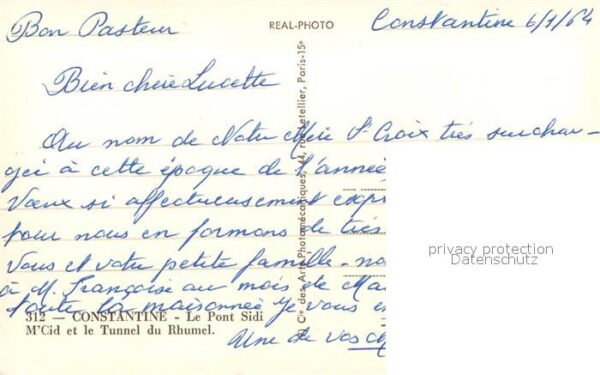 Bon Pasteur
REAL-PHOTO
Constantine 6/1/64
Bien chère Lucette
Au nom de Notre Mère St Croix très surchar-
gée à cette époque de l'année
Vœux si affectueusement exp
pour nous en formons de très
Vous et votre petite famille - no
à M. Françoise au mois de Ma
toute la maisonnée je vous e
Une de vos
312 — CONSTANTINE - Le Pont Sidi
M'Cid et le Tunnel du Rhumel.
Cie des Arts Photomécaniques, 44, rue Letellier, Paris-15e
privacy protection
Datenschutz